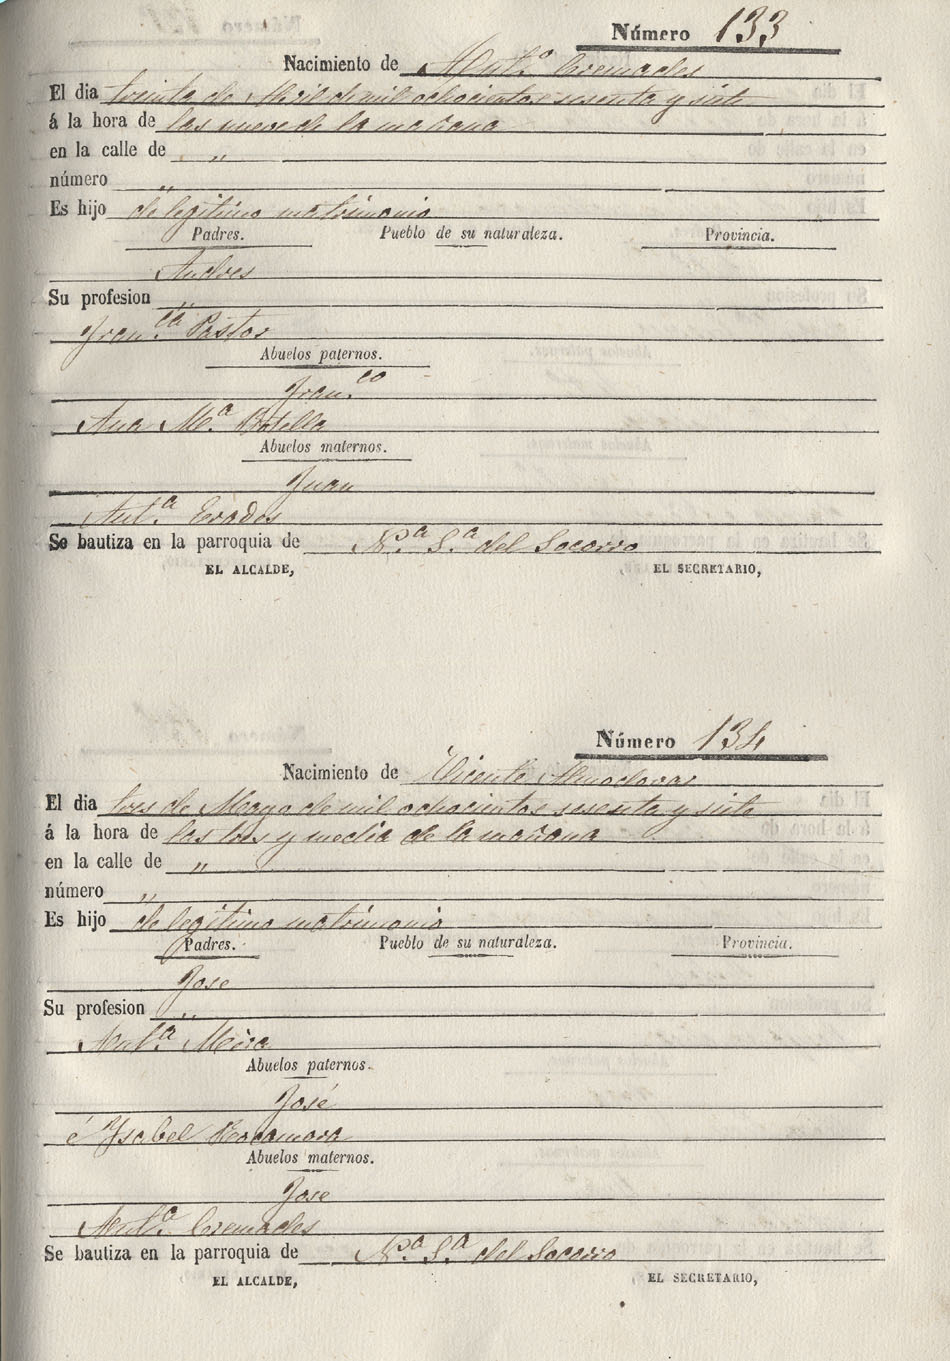 Número 133
Nacimiento de Antº Cremades
El dia treinta de Abril de mil ochocientos sesenta y siete
á la hora de las nueve de la mañana
en la calle de "
número "
Es hijo de legitimo matrimonio
Padres. Pueblo de su naturaleza. Provincia.
Andres
Su profesion "
Fran.ca Pastor
Abuelos paternos.
Fran.co
Ana M.a Botella
Abuelos maternos.
Juan
Ant.a
Se bautiza en la parroquia de N.a S.a del Socorro
EL ALCALDE, EL SECRETARIO,
Número 134
Nacimiento de Vicente Almodovar
El dia tres de Mayo de mil ochocientos sesenta y siete
á la hora de las tres y media de la mañana
en la calle de "
número "
Es hijo de legitimo matrimonio
Padres. Pueblo de su naturaleza. Provincia.
Jose
Su profesion "
Ant.a Mira
Abuelos paternos.
José
é Ysabel Rocamora
Abuelos maternos.
Jose
Ant.a Cremades
Se bautiza en la parroquia de N.a S.a del Socorro
EL ALCALDE, EL SECRETARIO,